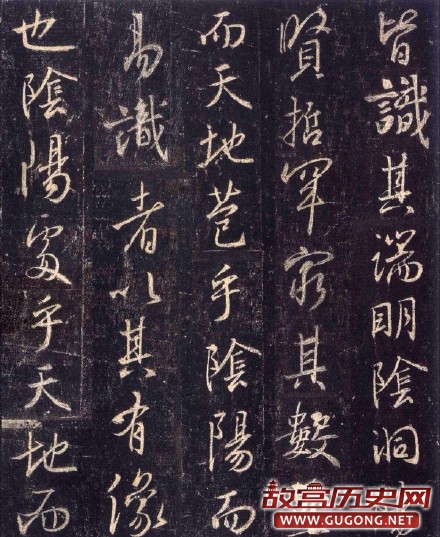 皆識其端明陰洞陽
賢哲罕窮其數
而天地苞乎陰陽而
易識者以其有像
也陰陽處乎天地而
故宫历史网
WWW.GUGONG.NET